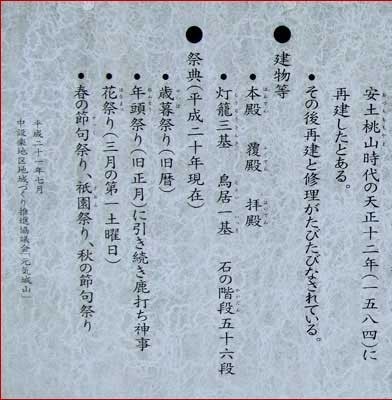 安土桃山時代の天正十二年(一五八四)に
再建したとある。
・その後再建と修理がたびたびなされている。
●建物等
・本殿 覆殿 拝殿
・灯籠三基 鳥居一基 石の階段五十六段
●祭典(平成二十年現在)
・歳暮祭り(旧暦)
・年頭祭り(旧正月)に引き続き鹿打ち神事
・花祭り(三月の第一土曜日)
・春の節句祭り、祇園祭り、秋の節句祭り
平成二十一年七月
中設楽地区地域づくり推進協議会「元気城山」